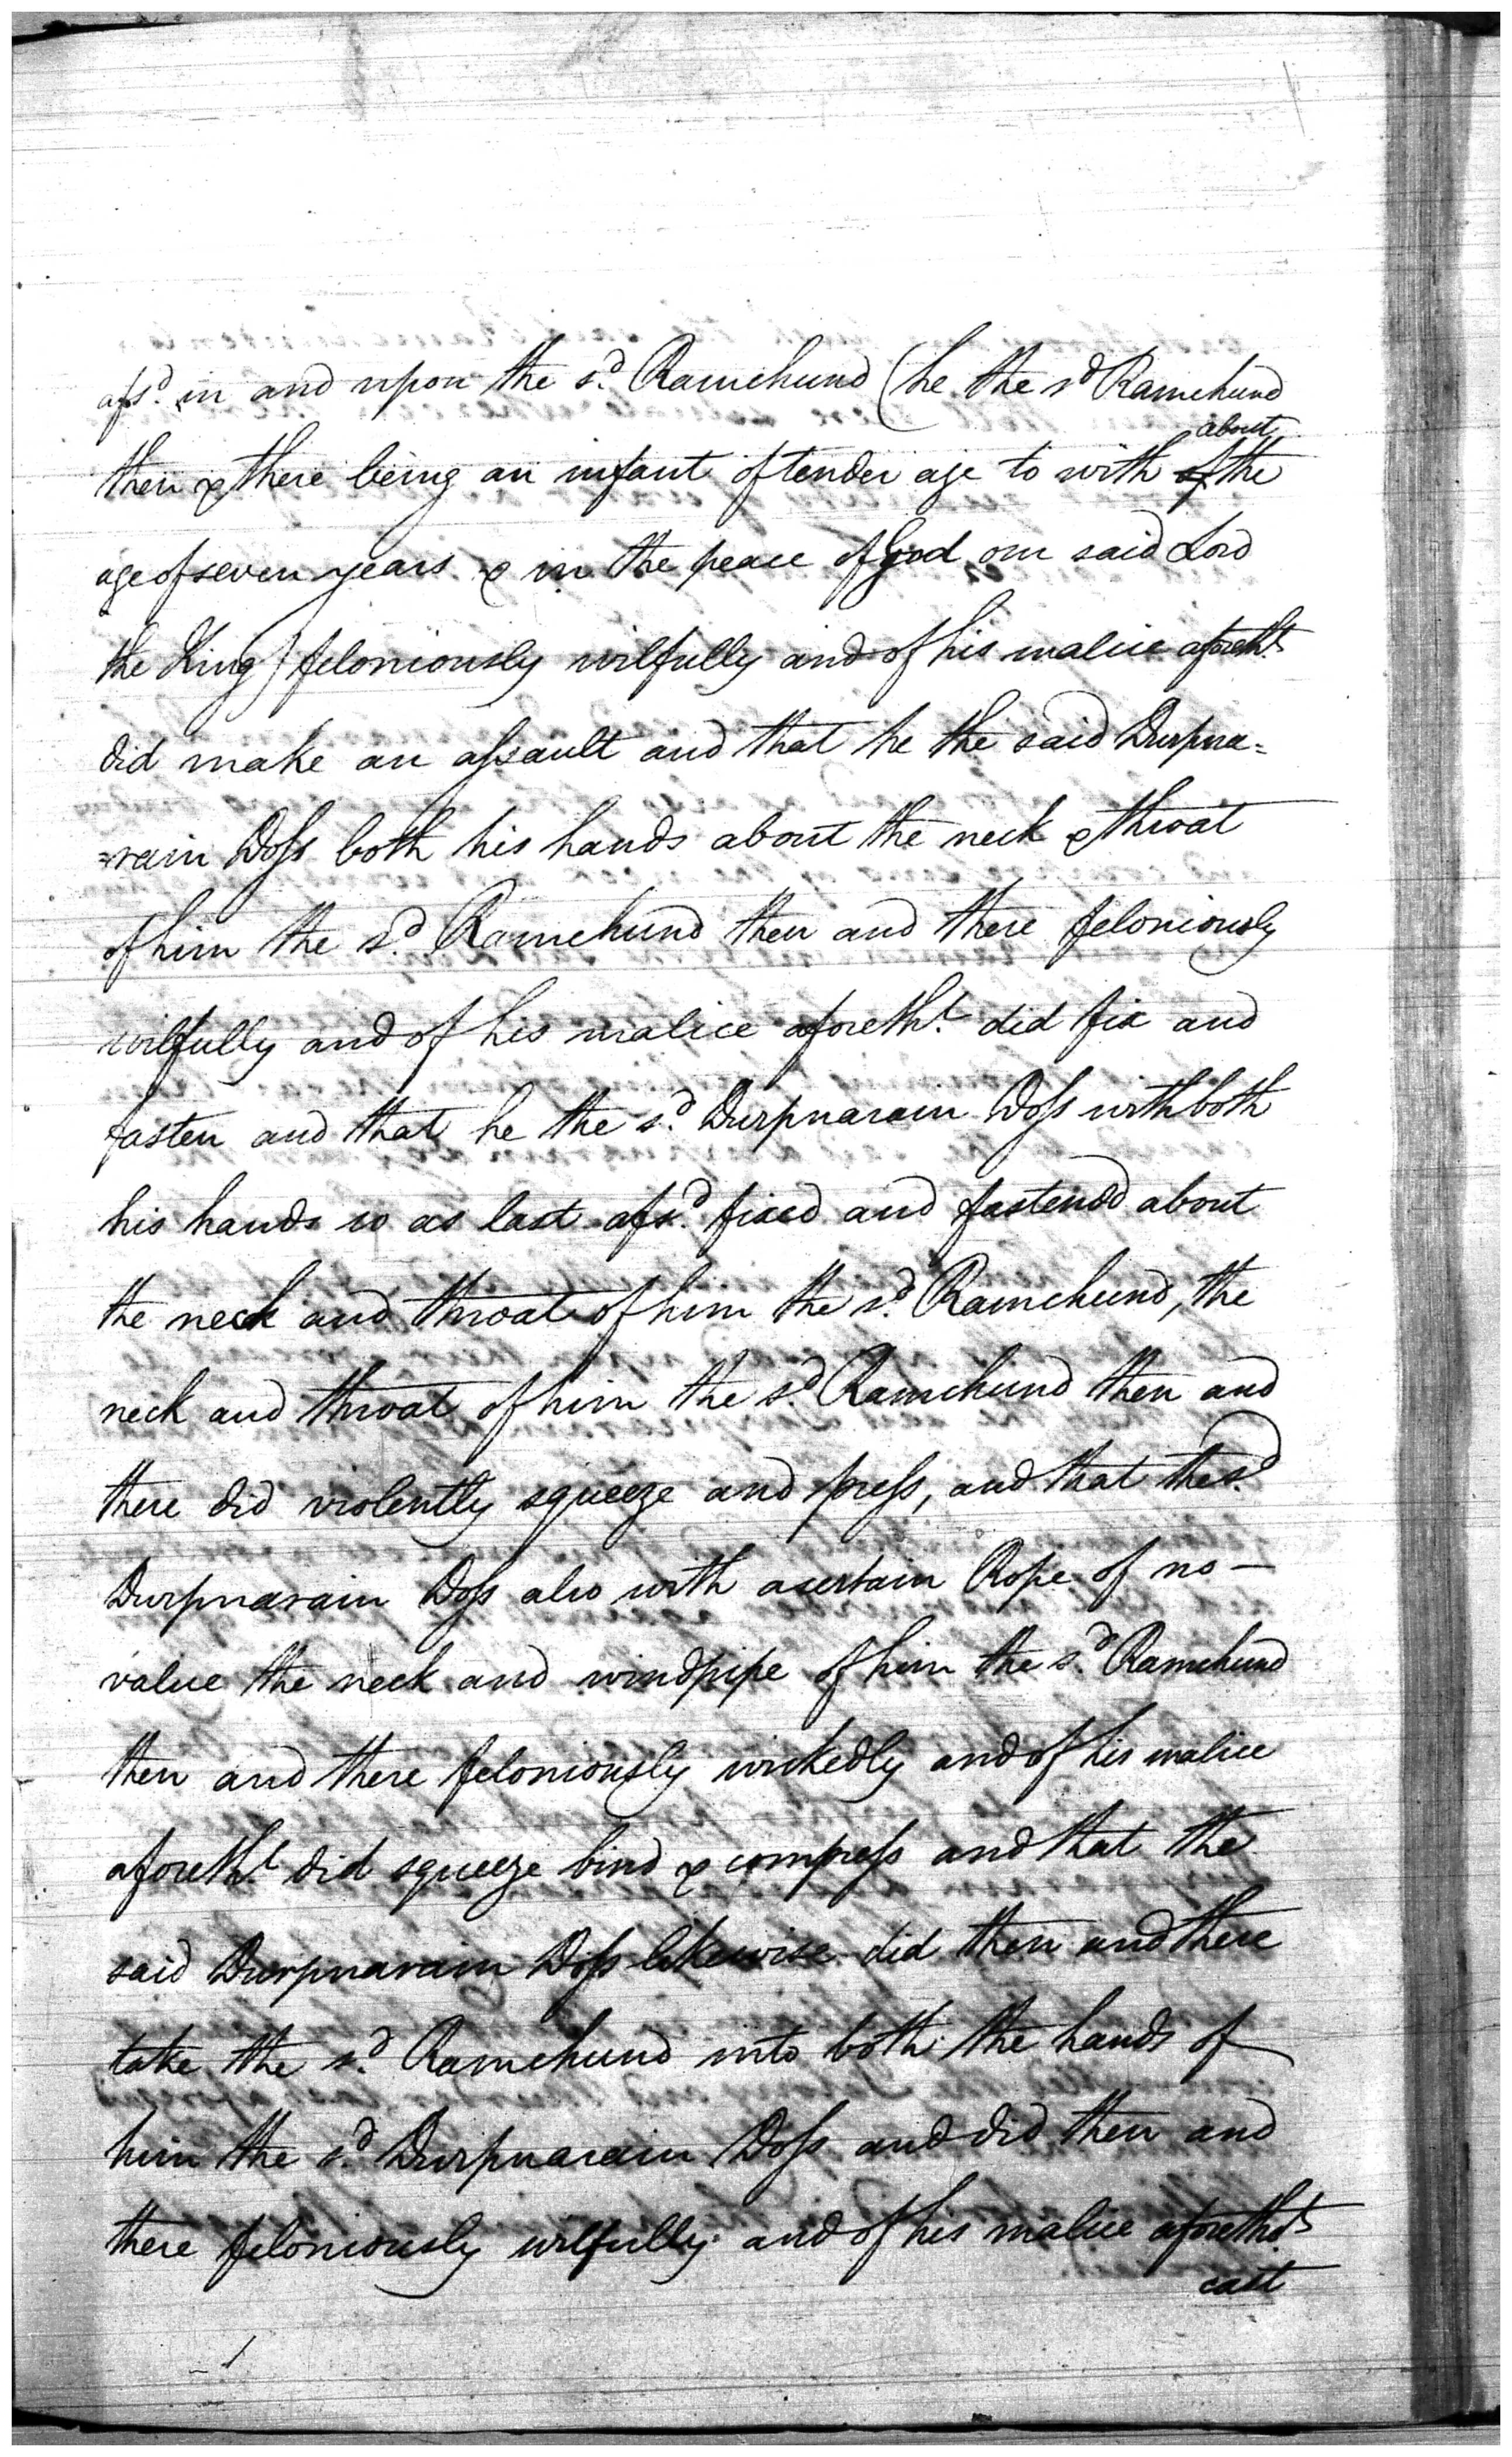 afsd. in and upon the sd. Ramchund (he the sd Ramchund
about
then & there being an infant of tender age to with of the
age of seven years & in the peace of God, our said Lord
the King) feloniously wilfully and of his malice aforetht.
did make an assault and that he the said Durpna=
=rain Doss both his hands about the neck & throat
of him the sd. Ramchund then and there feloniously
wilfully and of his malice aforetht. did fix and
fasten and that he the sd. Durpnarain Doss with both
his hands so as last afsd. fixed and fastened about
the neck and throat of him the sd. Ramchund, the
neck and throat of him the sd. Ramchund then and
there did violently squeeze and press, and that the sd.
Durpnarain Doss also with a certain Rope of no -
value the neck and windpipe of him the sd. Ramchund
then and there feloniously wickedly and of his malice
aforetht. did squeeze bind & compress and that the
said Durpnarain Doss likewise did then and there
take the sd. Ramchund into both the hands of
him the sd. Durpnarain Doss and did then and
there feloniously wilfully and of his malice aforetht.
cast